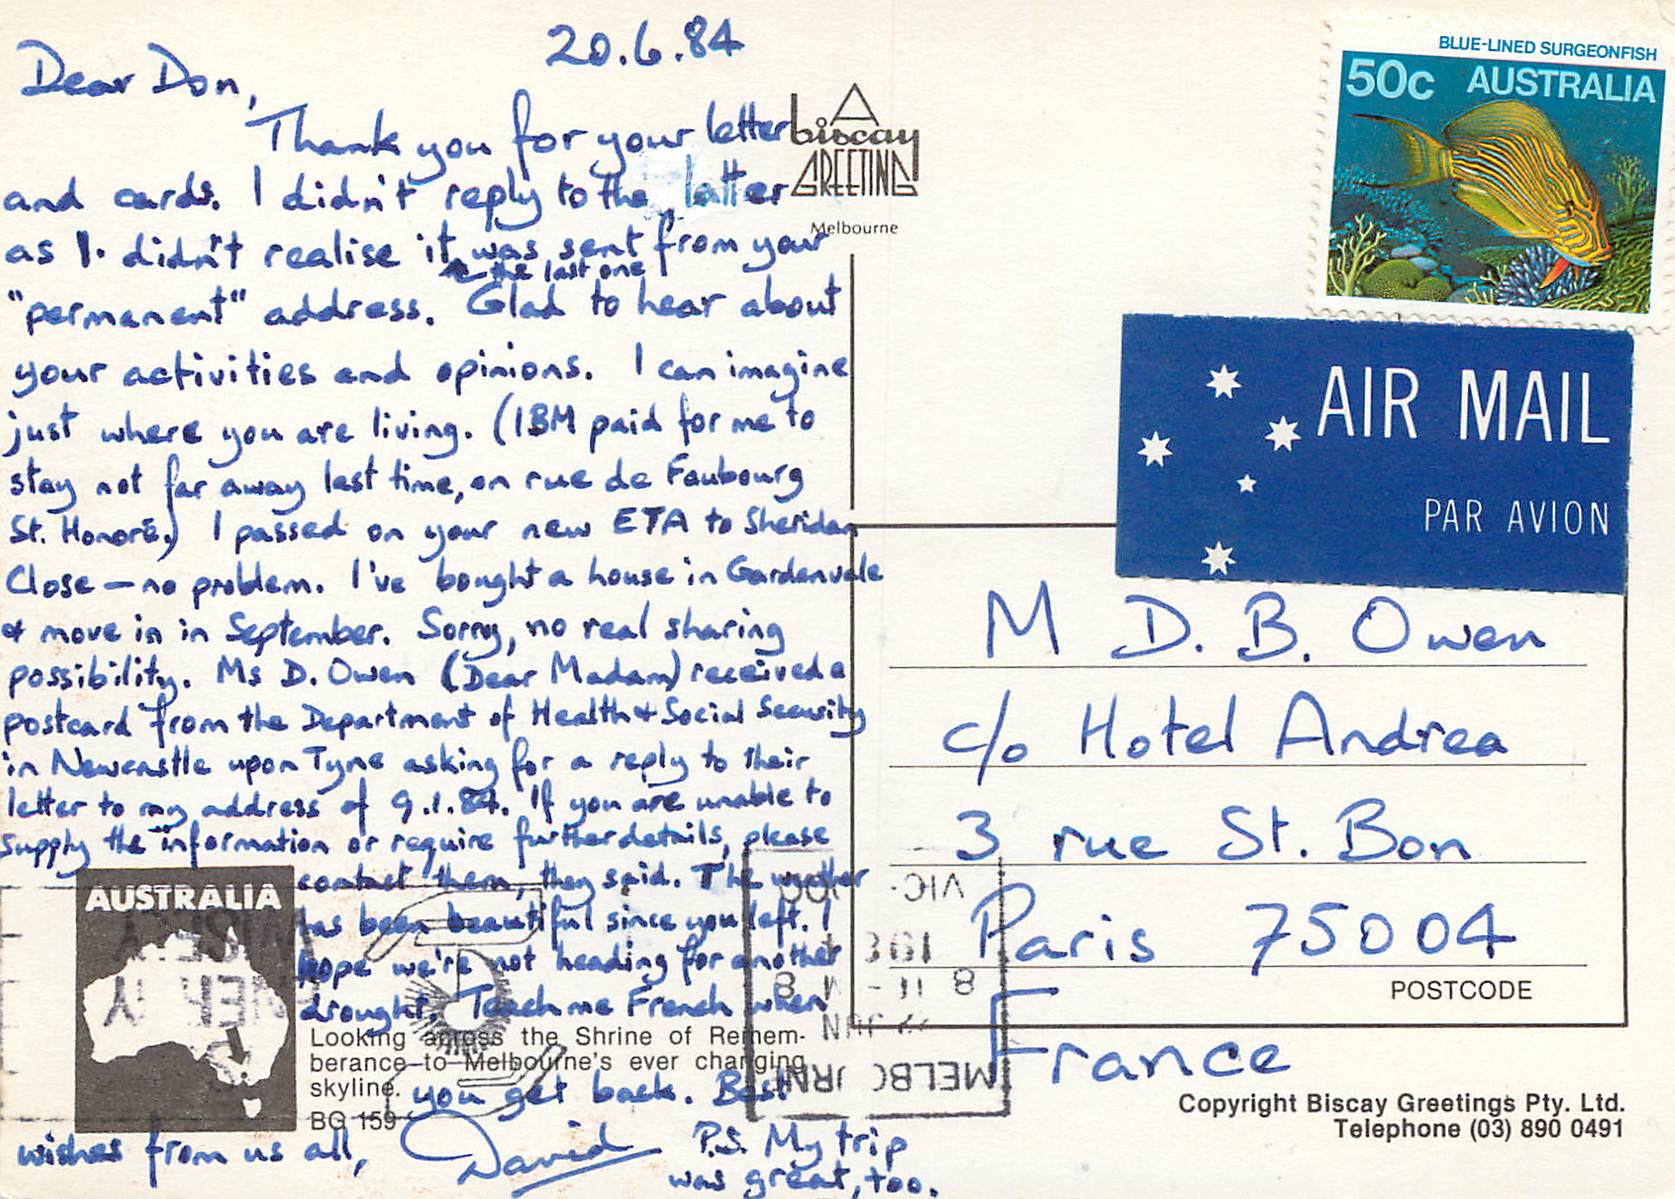 20.6.84
Dear Don,
Thank you for your letter
and cards. I didn't reply to the latter
as I didn't realise it was sent from your
the last one
"permanent" address. Glad to hear about
your activities and opinions. I can imagine
just where you are living. (IBM paid for me to
stay not far away last time, on rue de Faubourg
St. Honoré.) I passed on your new ETA to Sheridan
Close – no problem. I've bought a house in Gardenvale
& move in in September. Sorry, no real sharing
possibility. Ms D. Owen (Dear Madam) received a
postcard from the Department of Health & Social Security
in Newcastle upon Tyne asking for a reply to their
letter to my address of 9.1.84. If you are unable to
supply the information or require further details, please
contact them, they said. The weather
has been beautiful since you left. I
hope we're not heading for another
drought. Teach me French when
you get back. Best
wishes from us all,
David
P.S. My trip
was great, too.
AUSTRALIA
Looking across the Shrine of Remem-
berance to Melbourne's ever changing
skyline.
BG 159
A
biscay
GREETING
Melbourne
BLUE-LINED SURGEONFISH
50c AUSTRALIA
AIR MAIL
PAR AVION
M D. B. Owen
c/o Hotel Andrea
3 rue St. Bon
Paris 75004
POSTCODE
France
Copyright Biscay Greetings Pty. Ltd.
Telephone (03) 890 0491
VIC
MELBOURNE